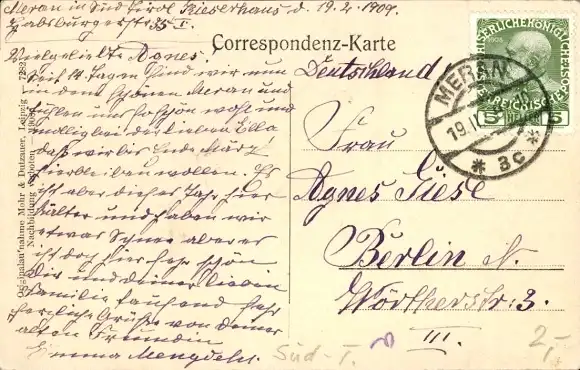 Meran in Süd Tirol Kieserhaus d. 19.2.1909.
Habsburgerstr 35 I.
Vielgeliebte Agnes.
Seit 14 Tagen sind wir nun
in dem schönen Meran und
fühlen uns so schön wohl und
mollig bei der lieben Ella
daß wir bis Ende März
hierbleiben wollen. Es
ist aber dieses Jahr hier
kälter und haben wir
etwas Schnee aber es
ist doch hier sehr schön
Dir und deiner lieben
Familie tausend sehr
herzliche Grüße von Deiner
alten Freundin
Emma Mengdehl.
Originalaufnahme Mohr & Dutzauer, Leipzig
Nachbildung verboten
Correspondenz-Karte
Deutschland
Frau
Agnes Giese
Berlin N.
Wörtherstr: 3.
III.
Süd-T.
2,-
KAISERLICHE KÖNIGLICHE
ÖSTERREICHISCHE POST
5
HELLER
5
MERAN
19.II
* 3c *